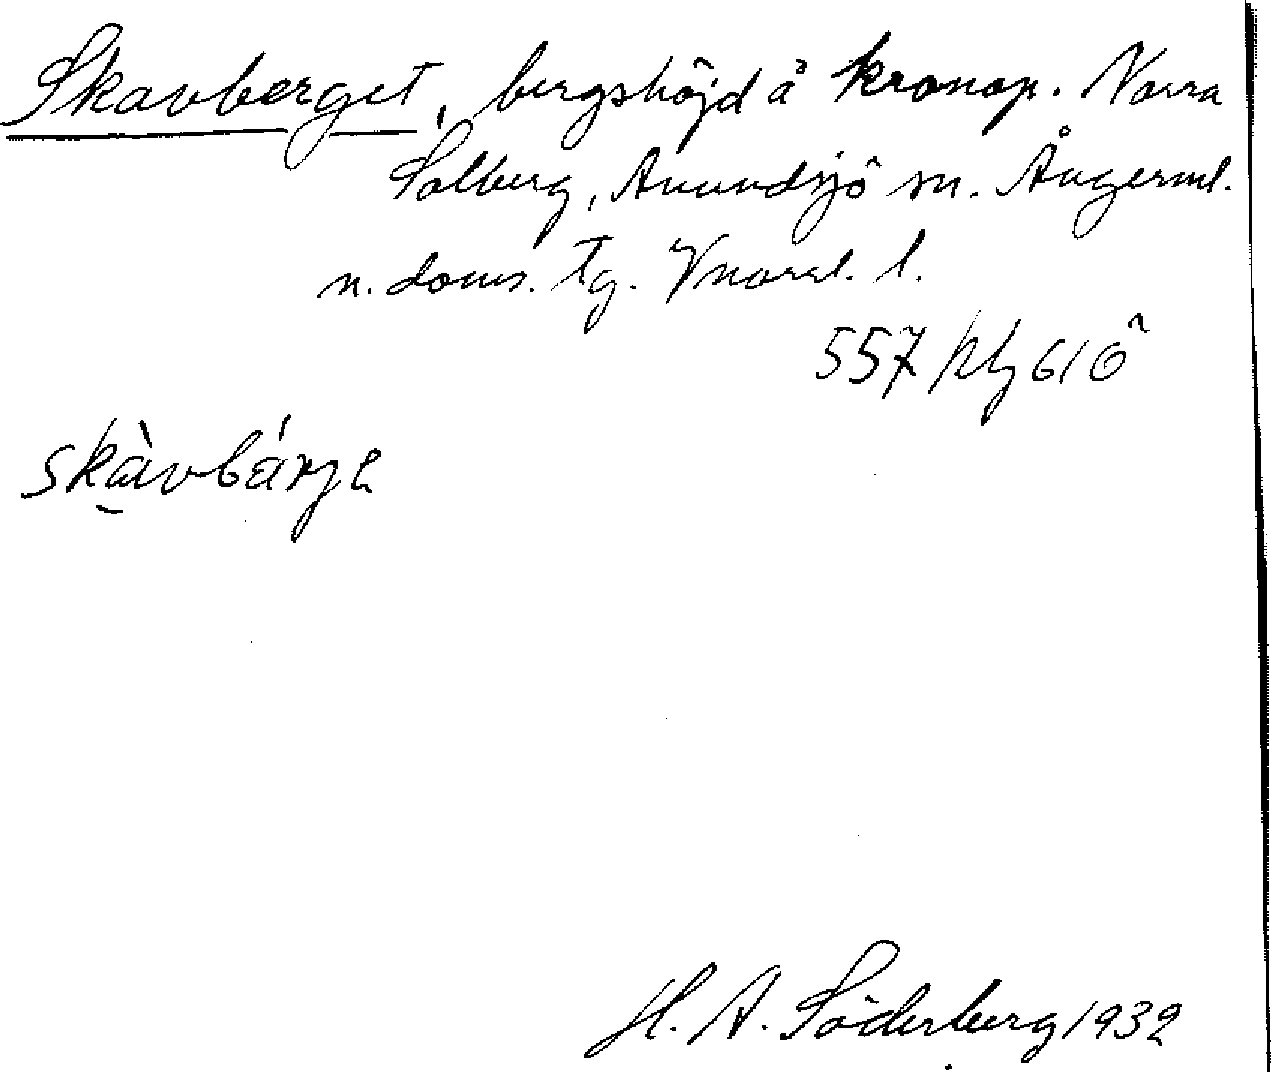 Skavberget, bergshöjd å kronop. Norra
Solberg, Anundsjö sn. Ångerml.
n. doms. tg. Vnorrl. l.
557
skàvbárje
H. A. Söderberg 1932